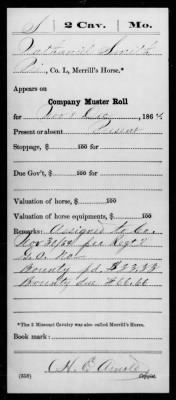 S | 2 Cav. | Mo.
Nathaniel Smith
Co. L, Merrill's Horse.*
Appears on
Company Muster Roll
for Nov & Dec, 1864.
Present or absent Present
Stoppage, $ 100 for
Due Gov't, $ 100 for
Valuation of horse, $ 100
Valuation of horse equipments, $ 100
Remarks: Assigned to Co.
Nov 30/64 per Regt'l
G.O. No
Bounty pd. $33.33
Bounty due $66.66
*The 2 Missouri Cavalry was also called Merrill's Horse.
Book mark:
(358)
Copyist.